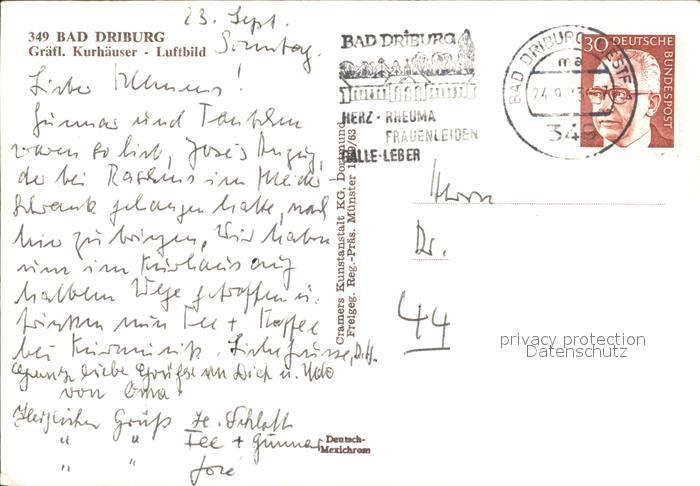 23. Sept.
Sonntag.
349 BAD DRIBURG
Gräfl. Kurhäuser - Luftbild
Lieber
Gunnar und Tantchen
waren so lieb, José's Anzug,
der bei im Kleider-
schrank gehangen hatte, nach
hier zu bringen, Wir haben
uns im Kurhaus auf
halbem Wege getroffen u.
trinken nun Tee + Kaffee
bei Kurmusik. Liebe Grüsse,
Ganz liebe Grüsse an Dich u. Udo
von Oma
Herzlichen Gruß
" " Fee + Gunnar
" " José
Deutsch-
Mexichrom
Cramers Kunstanstalt KG, Dortmund
Freigeg. Reg.-Präs. Münster
BAD DRIBURG
HERZ · RHEUMA
FRAUENLEIDEN
GALLE · LEBER
BAD DRIBURG
ma
24.9.73
349
30 DEUTSCHE
BUNDESPOST
Herrn
Dr.
44
privacy protection
Datenschutz